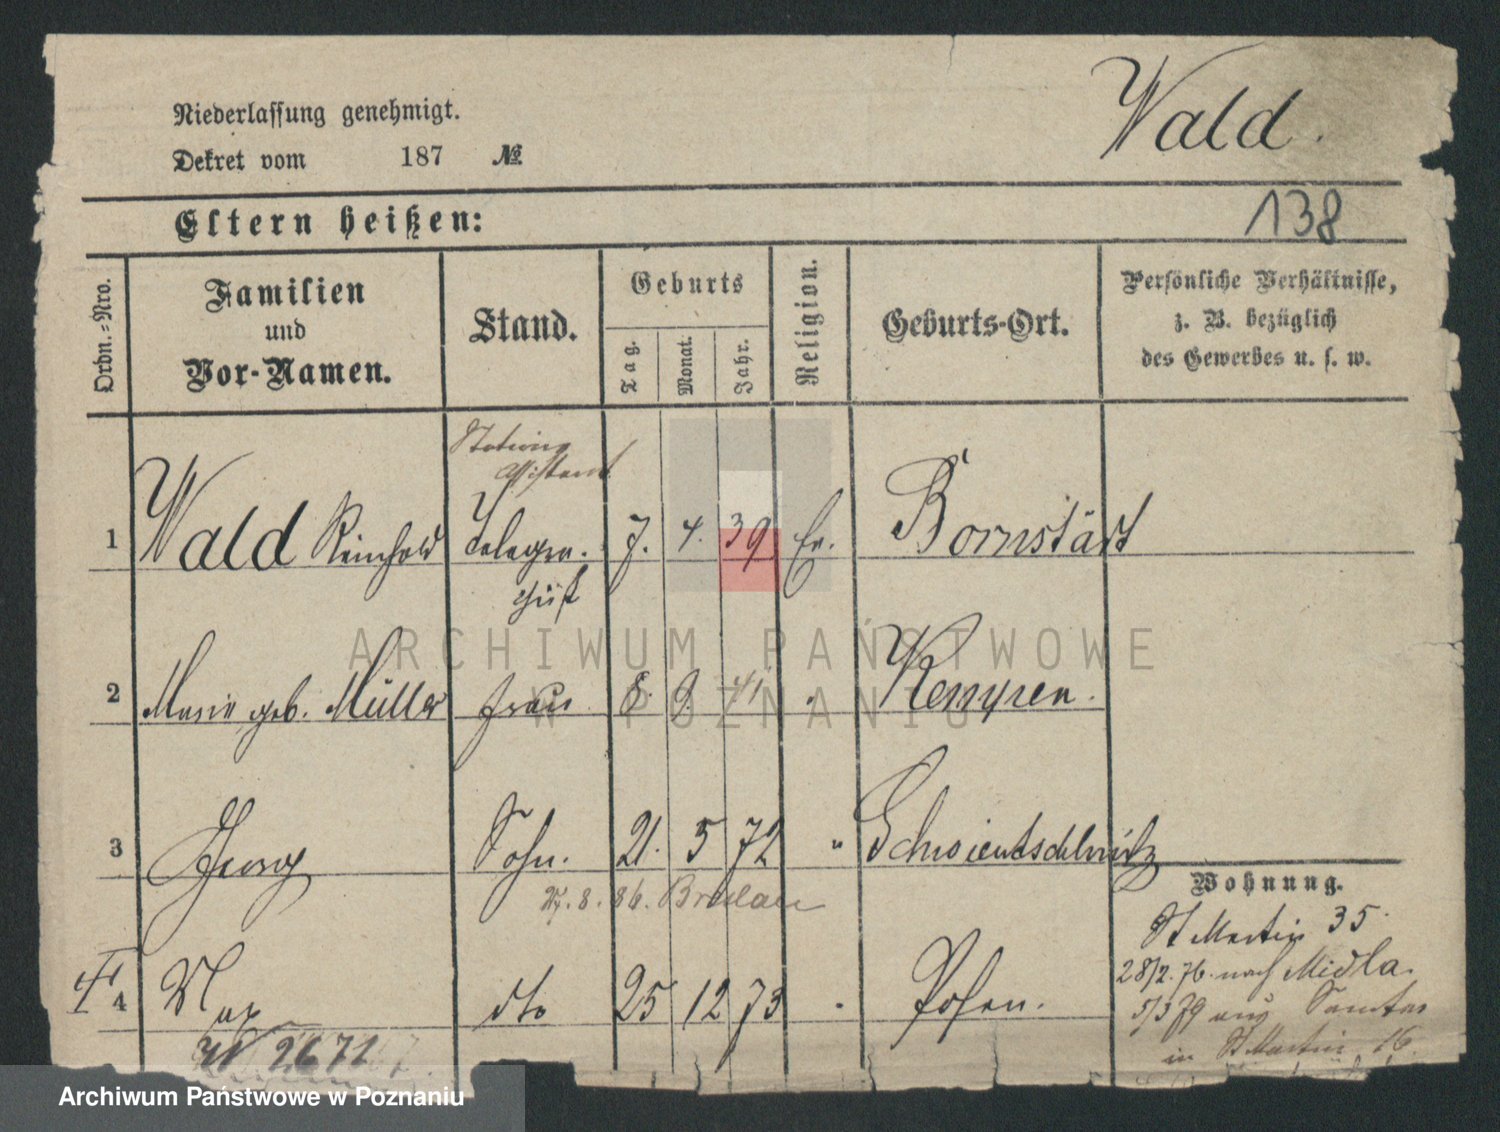 Niederlassung genehmigt.
Wald.
Dekret vom 187 №
Eltern heißen:
138
Ordn.-Nro.
Familien
und
Vor-Namen.
Stand.
Geburts
Tag.
Monat.
Jahr.
Religion.
Geburts-Ort.
Persönliche Verhältnisse,
z. B. bezüglich
des Gewerbes u. s. w.
Stations
Assistent
1 Wald Reinhold Telegra. 7. 4. 39 Ev. Bornstädt
2 Marie geb. Müller Frau 8. 9. 41 " Kempen.
3 Georg Sohn. 21. 5 72 " Schwientschlowitz
Wohnung.
27. 8. 86. Breslau
St Martin 35
4 Max dto 25 12 73 " Posen.
28/2. 76. nach
5/3 79 aus
in St Martin 16.
2671
ARCHIWUM PAŃSTWOWE
W POZNANIU
Archiwum Państwowe w Poznaniu